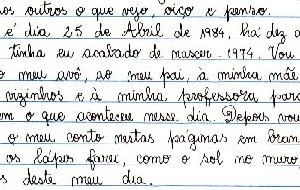 os outros o que vejo, oiço e penso.
é dia 25 de Abril de 1984, há dez a
tinha eu acabado de nascer. 1974. Vou
o meu avô, ao meu pai, à minha mãe
vizinhos e à minha professora para
em o que aconteceu nesse dia. Depois vou
o meu conto nestas páginas em bran
os lápis farei, como o sol no muro
s deste meu dia.